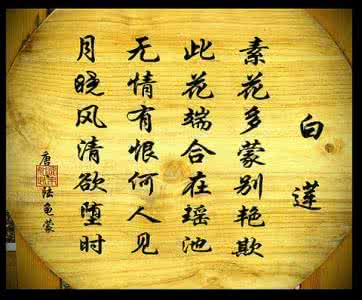 白莲
素花多蒙别艳欺
此花端合在瑶池
无情有恨何人见
月晓风清欲堕时
唐 陆龟蒙